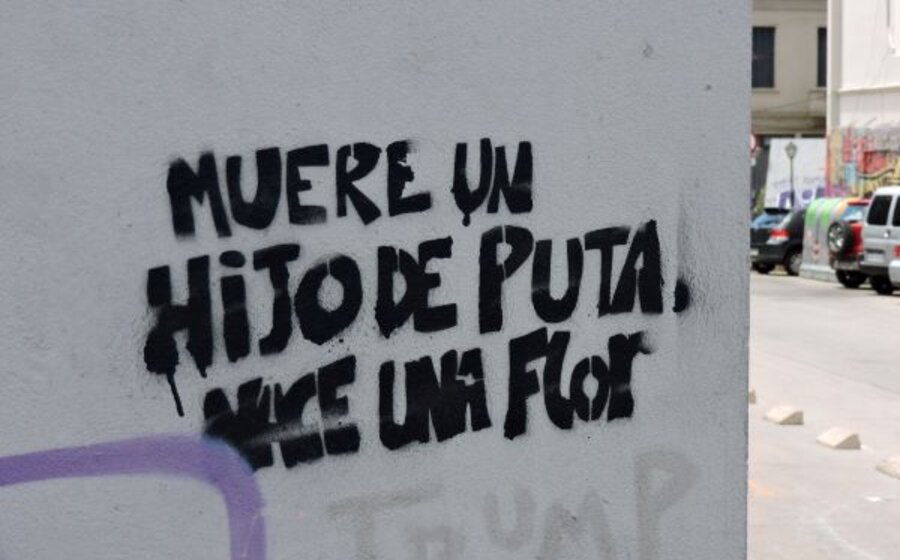 MUERE UN
HiJO DE PUTA,
NACE UNA FLOR
TRUMP